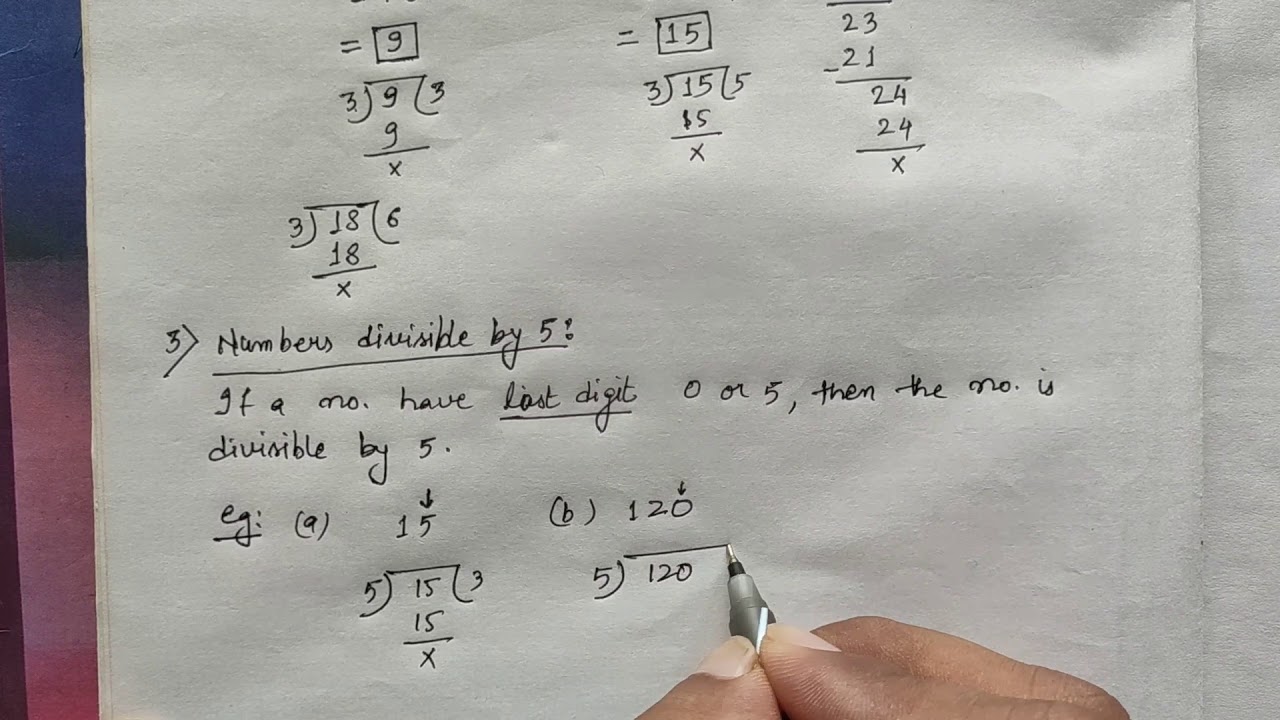 = 9
3) 9 (3
9
x
3) 18 (6
18
x
= 15
3) 15 (5
15
x
23
-21
24
24
x
3) Numbers divisible by 5:
If a no. have last digit 0 or 5, then the no. is
divisible by 5.
eg: (a) 15 (b) 120
5) 15 (3
15
x
5) 120